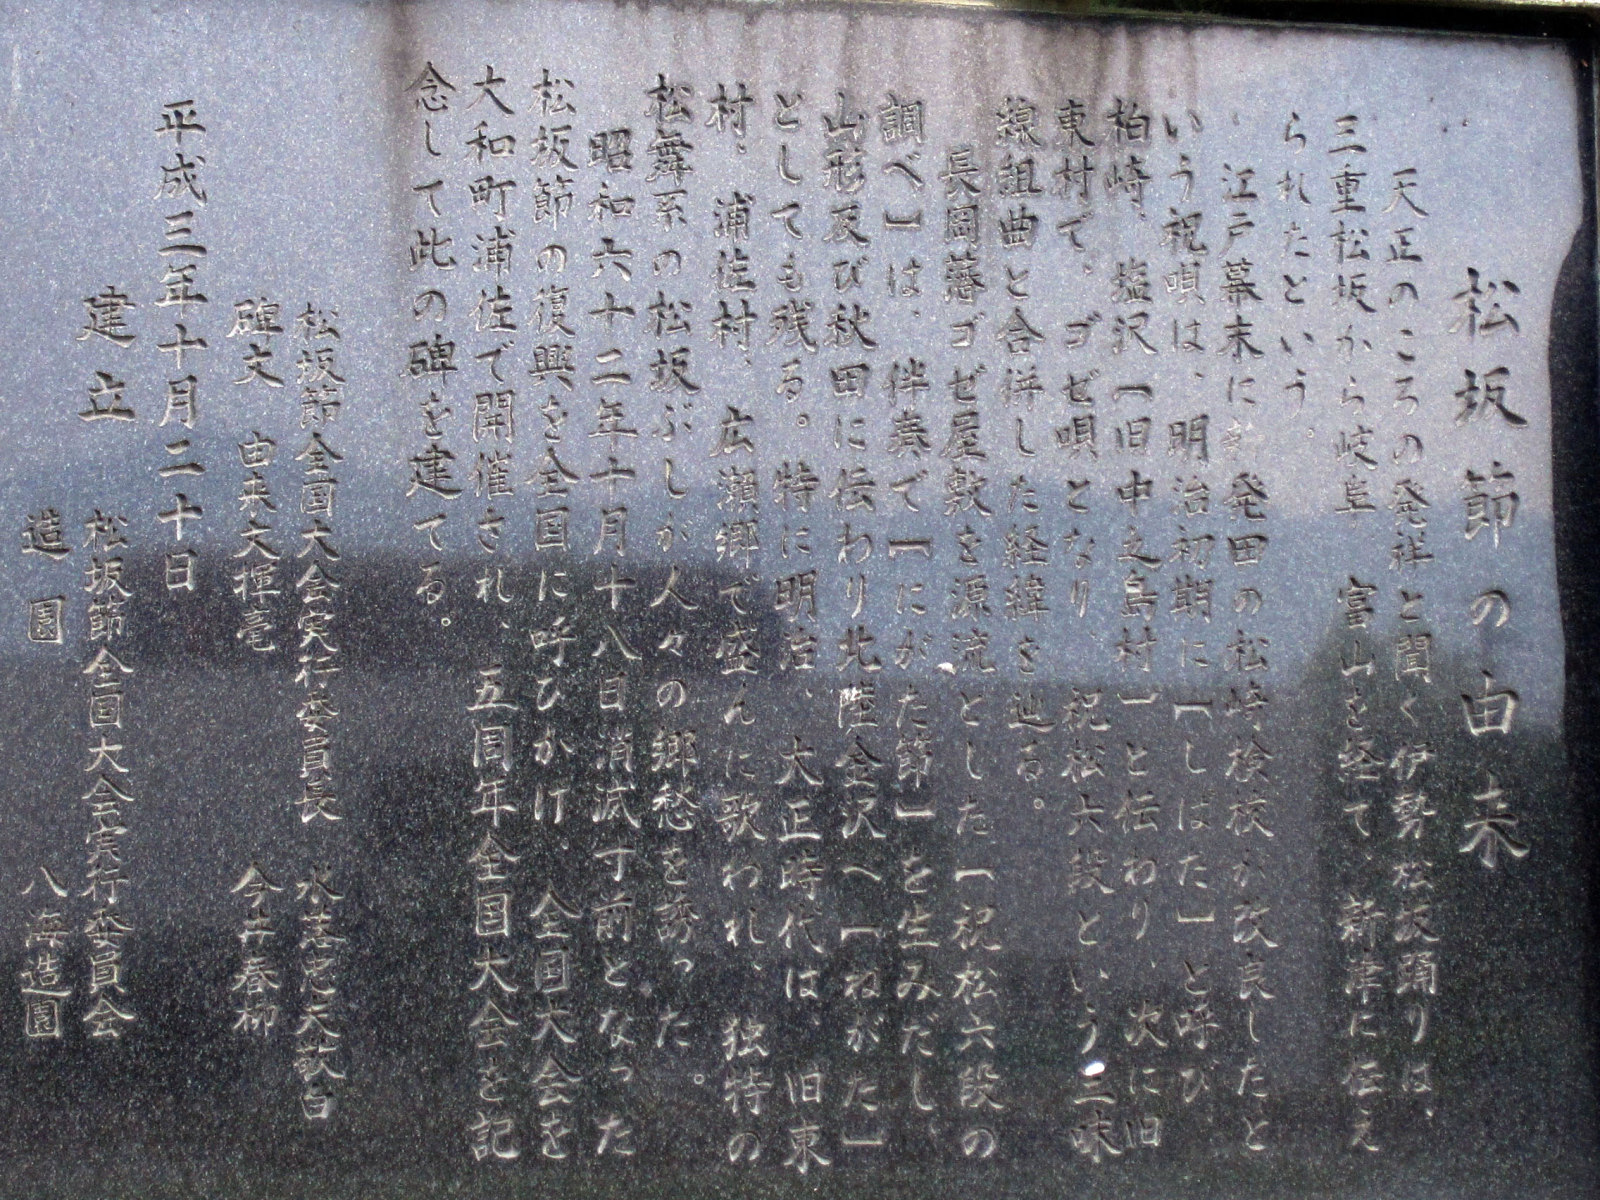 松坂節の由来
天正のころの発祥と聞く伊勢松坂踊りは、
三重松坂から岐阜、富山を経て、新津に伝え
られたという。
江戸幕末に新発田の松崎検校が改良したと
いう祝唄は、明治初期に「しばた」と呼び、
柏崎、塩沢「旧中之島村」と伝わり、次に旧
東村で、ゴゼ唄となり、祝松六段という三味
線組曲と合併した経緯を辿る。
長岡藩ゴゼ屋敷を源流とした「祝松六段の
調べ」は、伴奏で「にがた節」を生みだし、
山形及び秋田に伝わり北陸金沢へ「ねがた」
としても残る。特に明治、大正時代は、旧東
村、浦佐村、広瀬郷で盛んに歌われ、独特の
松舞系の松坂ぶしが人々の郷愁を誘った。
昭和六十二年十月十八日消滅寸前となった
松坂節の復興を全国に呼びかけ、全国大会を
大和町浦佐で開催され、五周年全国大会を記
念して此の碑を建てる。
松坂節全国大会実行委員長 水落忠夫敬白
碑文 由来文揮毫 今井春柳
平成三年十月二十日
建立 松坂節全国大会実行委員会
造園 八海造園